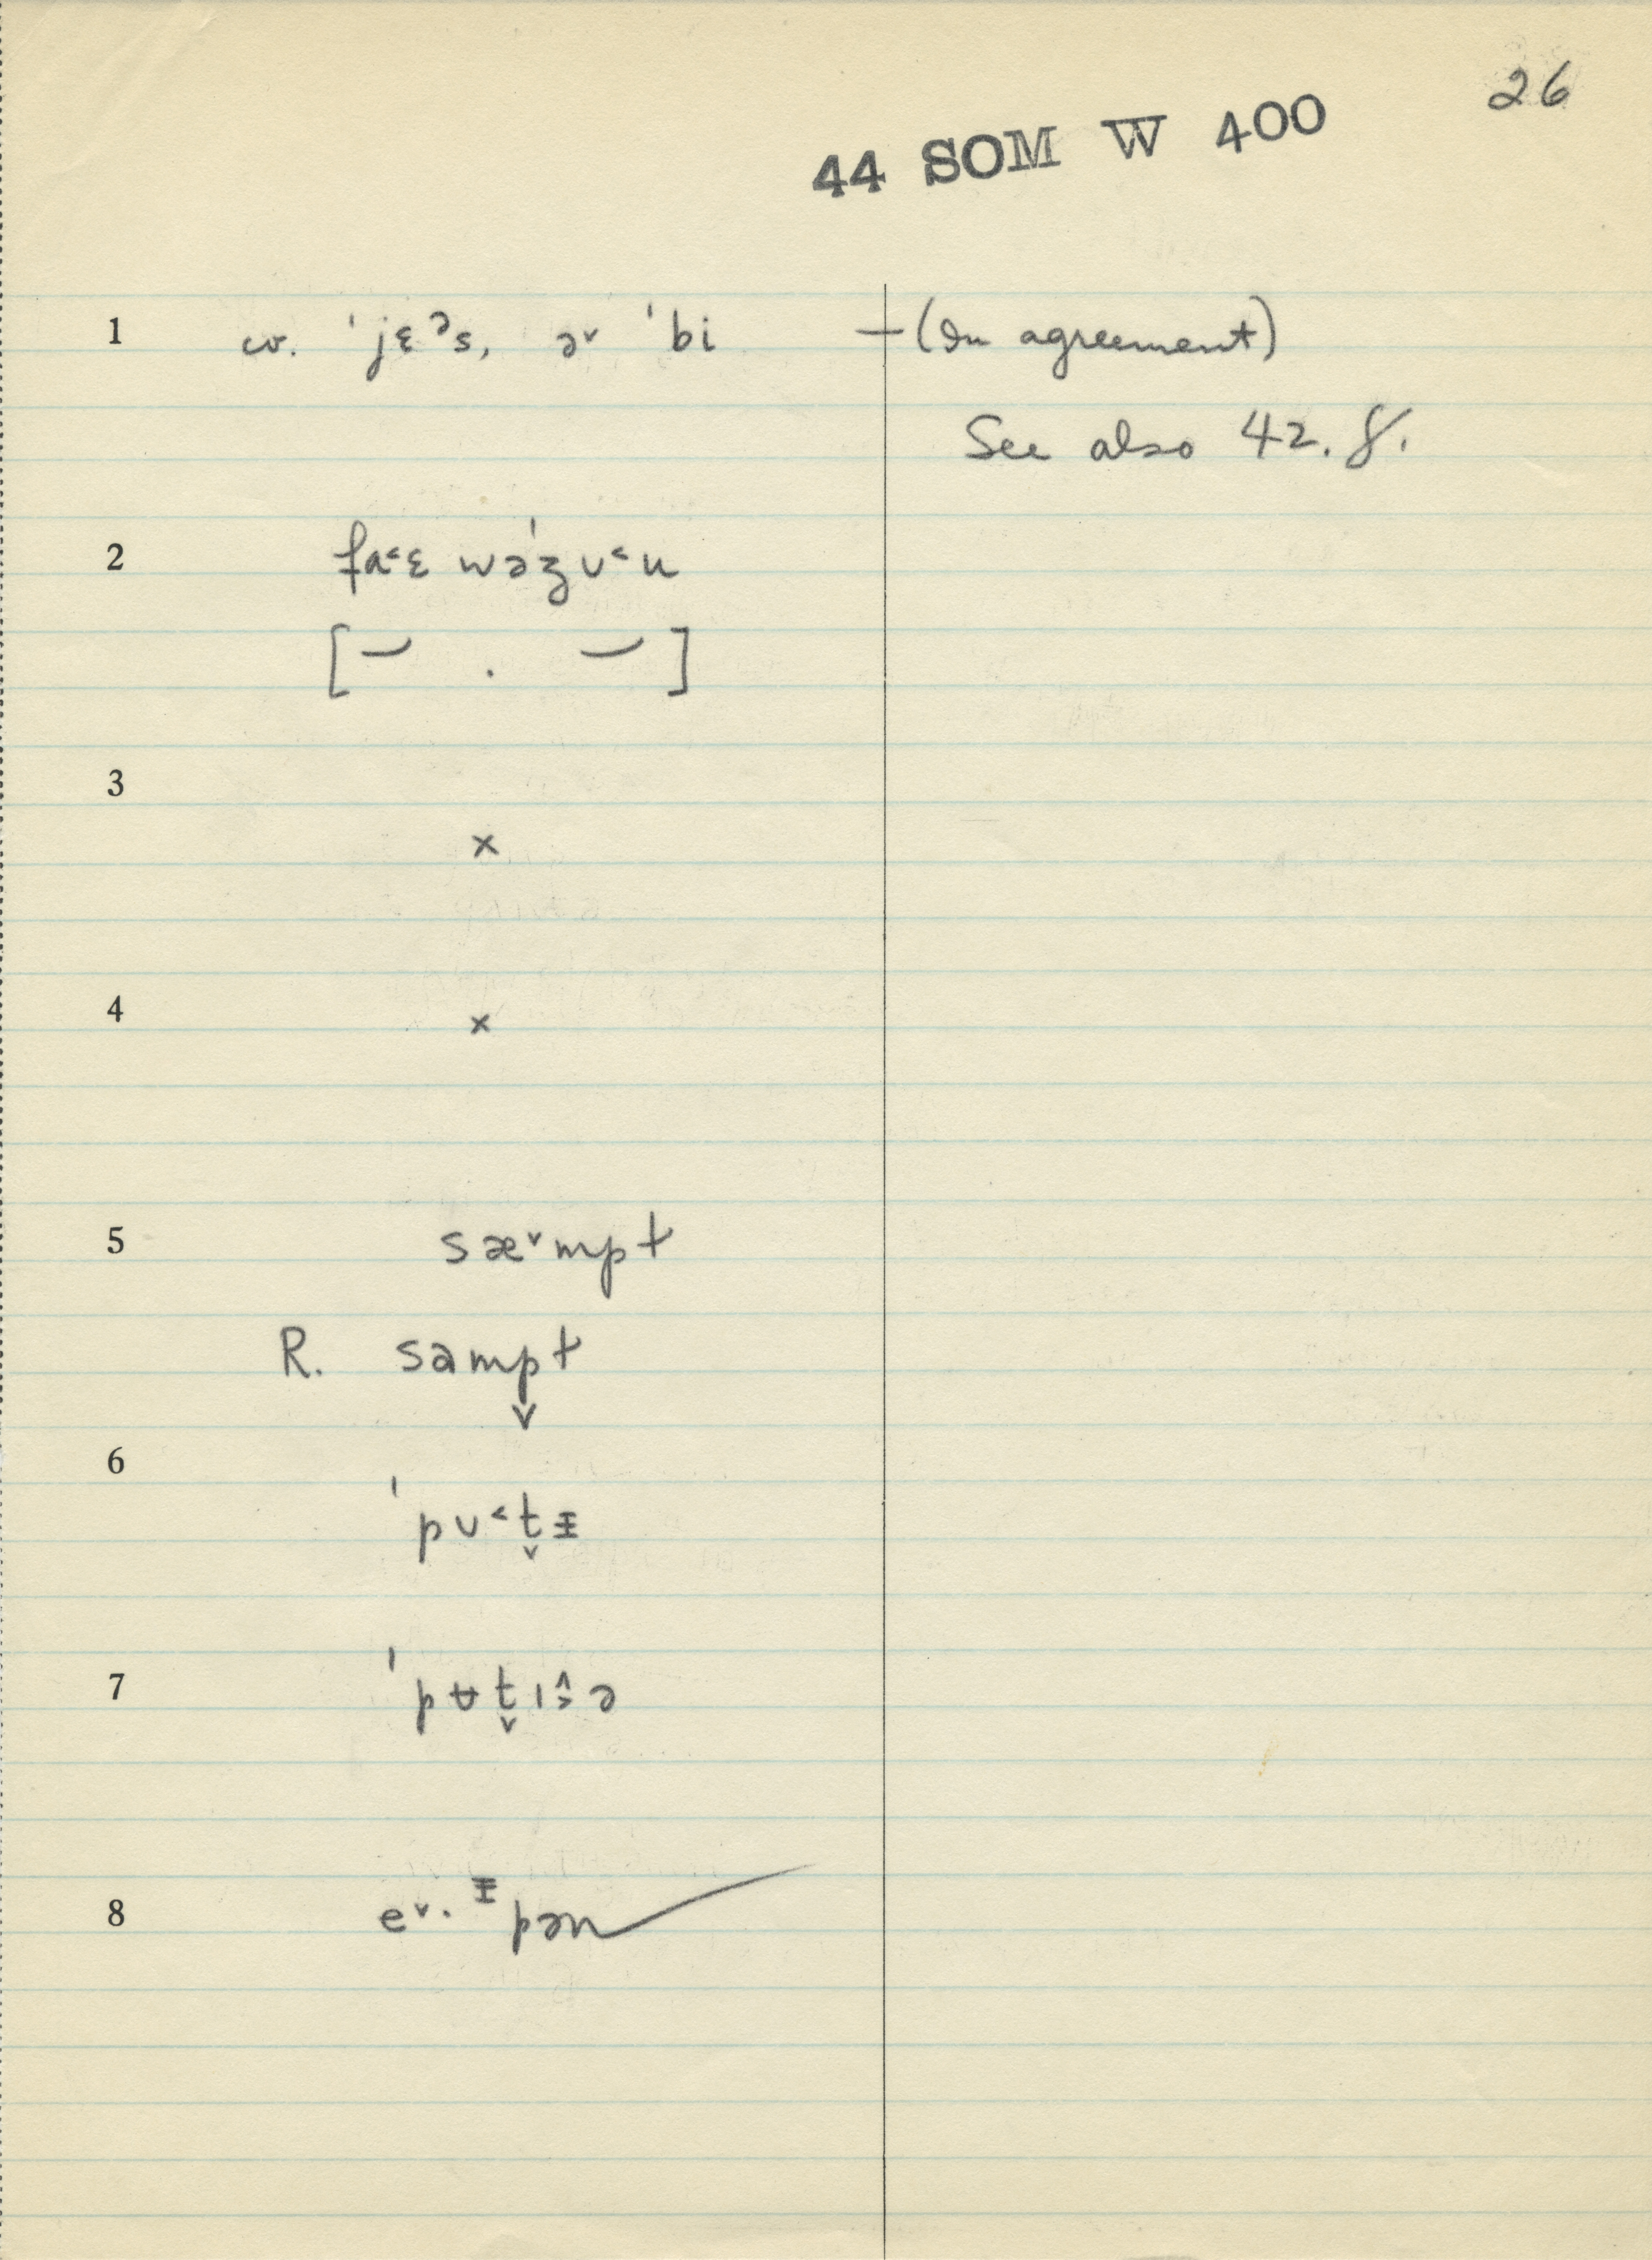 26
44 SOM W 400
1 w. ˈjɛᵊs, ə˅ ˈbi —(In agreement)
See also 42.8.
2 fɑ˂ɛ wəˈʒʊ˂u
[— . —]
3
×
4
×
5 sæ˅mpt
R. sampt
↓
6
ˈpʊ˂t̬ᵻ
7 ˈpʉt̬ɪ ə
8 e˅·ᵻpən